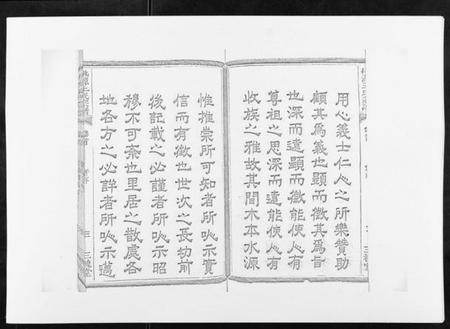 用心義士仁人之所樂贊助
顧其為義也顯而徵其為旨
也深而遠顯而徵能使人有
尊祖之思深而遠能使人有
收族之雅故其間木本水源
惟推崇所可知者所以示實
信而有徵也世次之長幼前
後記載之必謹者所以示昭
穆不可紊也里居之散處各
地各方之必詳者所以示遠
三槐堂
三槐堂